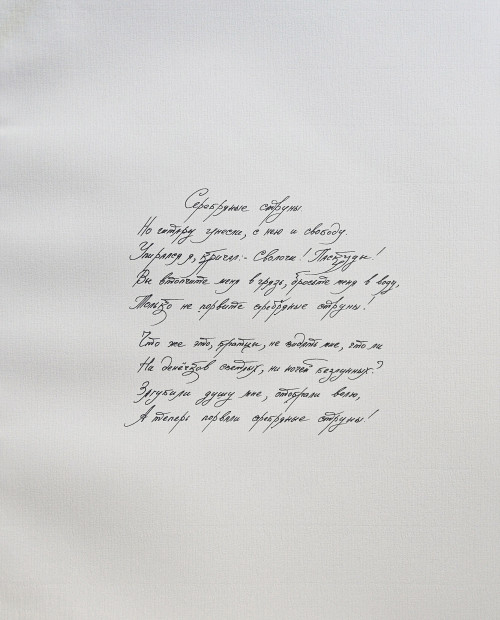 Серебряные струны.
Но гитару унесли, с нею и свободу.
Упирался я, кричал:- Сволочи! Паскуды!
Вы втопчите меня в грязь, бросьте меня в воду,
Только не порвите серебряные струны!
Что же это, братцы, не видать мне, что ли
Ни денёчков светлых, ни ночей безлунных?
Загубили душу мне, отобрали волю,
А теперь порвали серебряные струны!